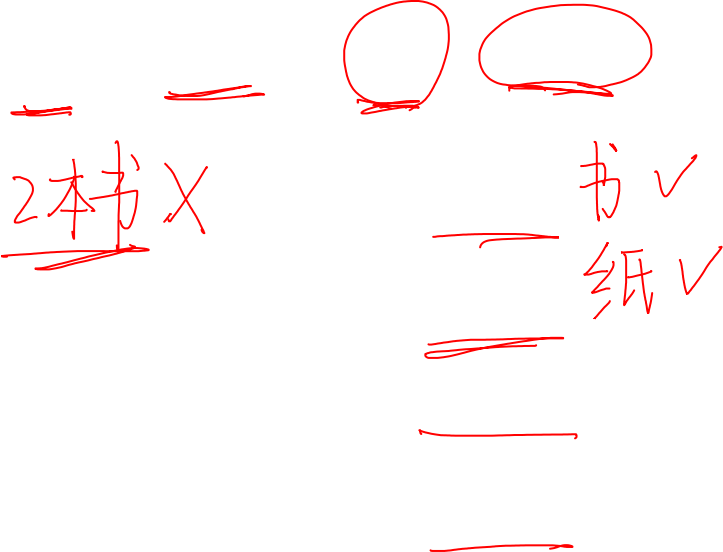 2本书 ×
书 ✓
纸 ✓